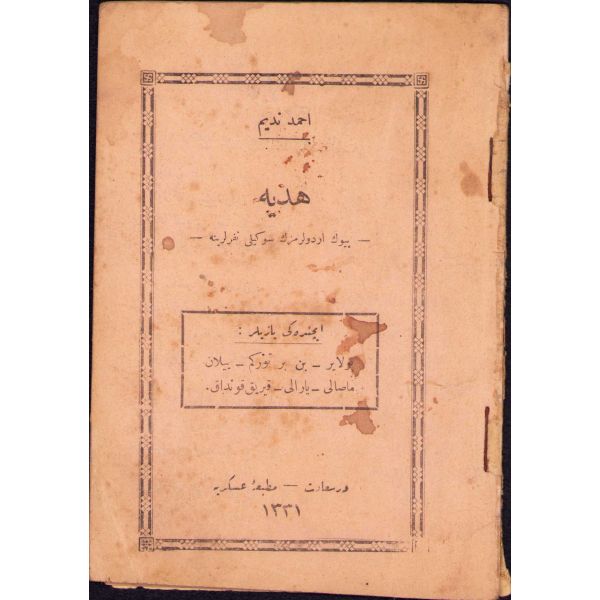 احمد نديم
هديه
— بيوك اردولرمزك سوكيلى نفرلرينه —
ايچنده كى يازيلر :
بولاير — بن بر توركم — ييلان
ماصالى — يارالى — قيريق قونداق.
درسعادت — مطبعهٔ عسكريه
١٣٣١